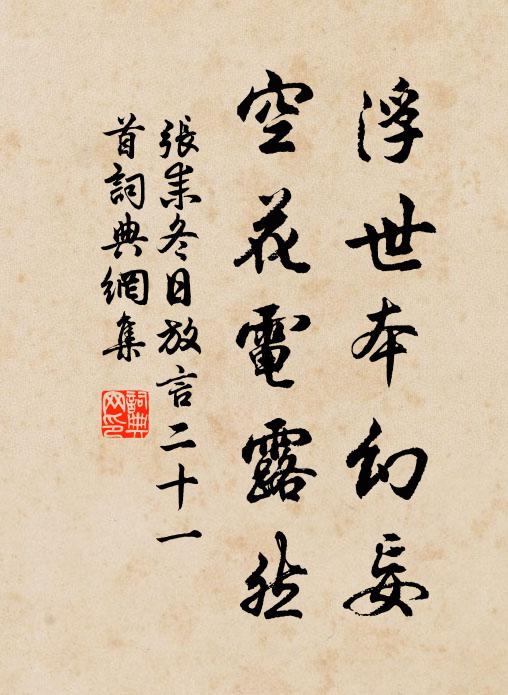 浮世本幻妄
空花電露然
張耒冬日放言二十一
首詞典網集
詞典
网印